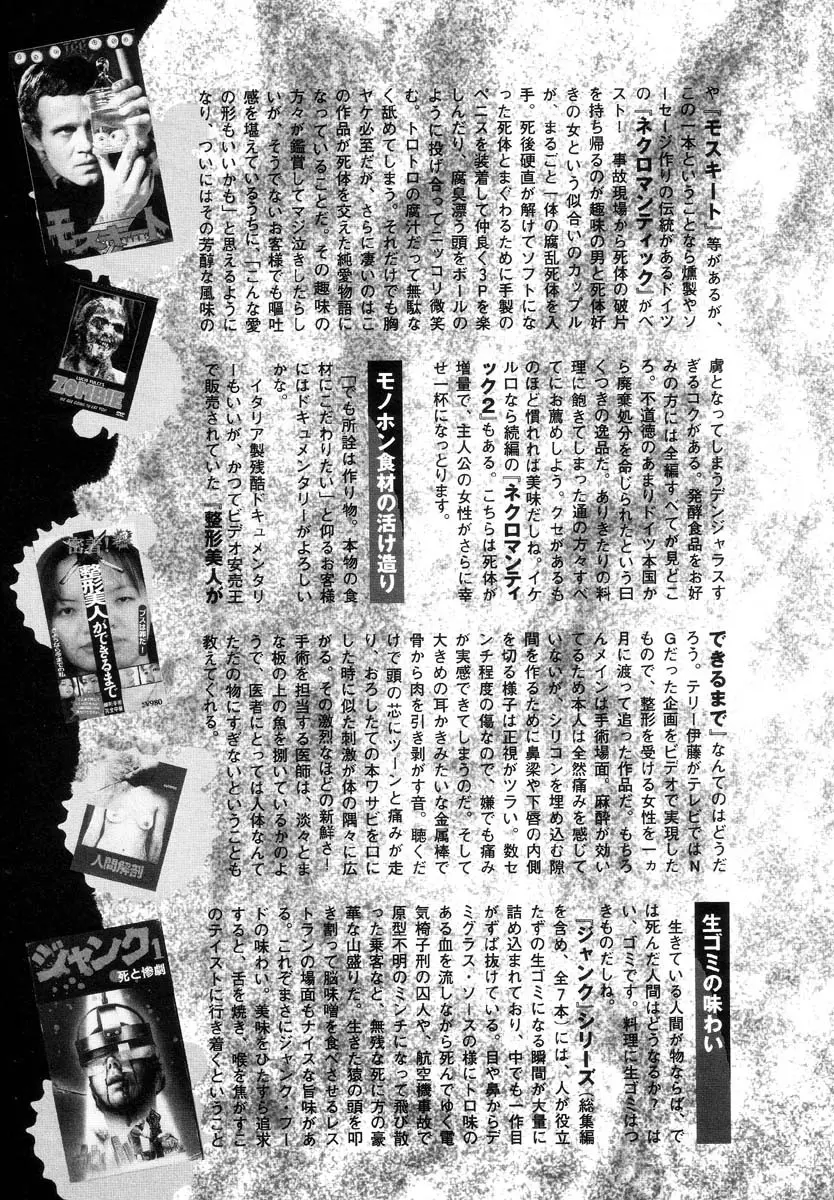 や『モスキート』等があるが、
この一本ということなら燻製やソ
ーセージ作りの伝統があるドイツ
の『ネクロマンティック』がベ
スト！　事故現場から死体の破片
を持ち帰るのが趣味の男と死体好
きの女という似合いのカップル
が、まるごと一体の腐乱死体を入
手。死後硬直が解けてソフトにな
った死体とまぐわるために手製の
ペニスを装着して仲良く3Pを楽
しんだり、腐臭漂う頭をボールの
ように投げ合ってニッコリ微笑
む。トロトロの腐汁だって無駄な
く舐めてしまう。それだけでも胸
ヤケ必至だが、さらに凄いのはこ
の作品が死体を交えた純愛物語に
なっていることだ。その趣味の
方々が鑑賞してマジ泣きしたらし
いが、そうでないお客様でも嘔吐
感を堪えているうちに、「こんな愛
の形もいいかも」と思えるように
なり、ついにはその芳醇な風味の
虜となってしまうデンジャラスす
ぎるコクがある。発酵食品をお好
みの方には全編すべてが見どこ
ろ。不道徳のあまりドイツ本国か
ら廃棄処分を命じられたという曰
くつきの逸品だ。ありきたりの料
理に飽きてしまった通の方々すべ
てにお薦めしよう。クセがあるも
のほど慣れれば美味だしね。イケ
ルロなら続編の『ネクロマンティ
ック2』もある。こちらは死体が
増量で、主人公の女性がさらに幸
せ一杯になっとります。
モノホン食材の活け造り
「でも所詮は作り物。本物の食
材にこだわりたい」と仰るお客様
にはドキュメンタリーがよろしい
かな。
イタリア製残酷ドキュメンタリ
ーもいいが、かつてビデオ安売王
で販売されていた『整形美人が
できるまで』なんてのはどうだ
ろう。テリー伊藤がテレビではN
Gだった企画をビデオで実現した
もので、整形を受ける女性を一ヵ
月に渡って追った作品だ。もちろ
んメインは手術場面。麻酔が効い
てるため本人は全然痛みを感じて
いないが、シリコンを埋め込む隙
間を作るために鼻梁や下唇の内側
を切る様子は正視がツラい。数セ
ンチ程度の傷なので、嫌でも痛み
が実感できてしまうのだ。そして
大きめの耳かきみたいな金属棒で
骨から肉を引き剥がす音。聴くだ
けで頭の芯にツーンと痛みが走
り、おろしたての本ワサビを口に
した時に似た刺激が体の隅々に広
がる。その激烈なほどの新鮮さ！
手術を担当する医師は、淡々とま
な板の上の魚を捌いているかのよ
うで、医者にとっては人体なんて
ただの物にすぎないということも
教えてくれる。
生ゴミの味わい
生きている人間が物ならば、で
は死んだ人間はどうなるか？　は
い、ゴミです。料理に生ゴミはつ
きものだしね。
『ジャンク』シリーズ（総集編
を含め、全7本）には、人が役立
たずの生ゴミになる瞬間が大量に
詰め込まれており、中でも一作目
がずば抜けている。目や鼻からデ
ミグラス・ソースの様にトロ味の
ある血を流しながら死んでゆく電
気椅子刑の囚人や、航空機事故で
原型不明のミンチになって飛び散
った乗客など、無残な死に方の豪
華な山盛りだ。生きた猿の頭を叩
き割って脳味噌を食べさせるレス
トランの場面もナイスな旨味があ
る。これぞまさにジャンク・フー
ドの味わい。美味をひたすら追求
すると、舌を焼き、喉を焦がすこ
のテイストに行き着くということ
モスキート
ZOMBIE
WE ARE GOING TO EAT YOU!
密着！
整形美人ができるまで
ブスは罪だ！
¥980
人間解剖
ジャンク1
死と惨劇